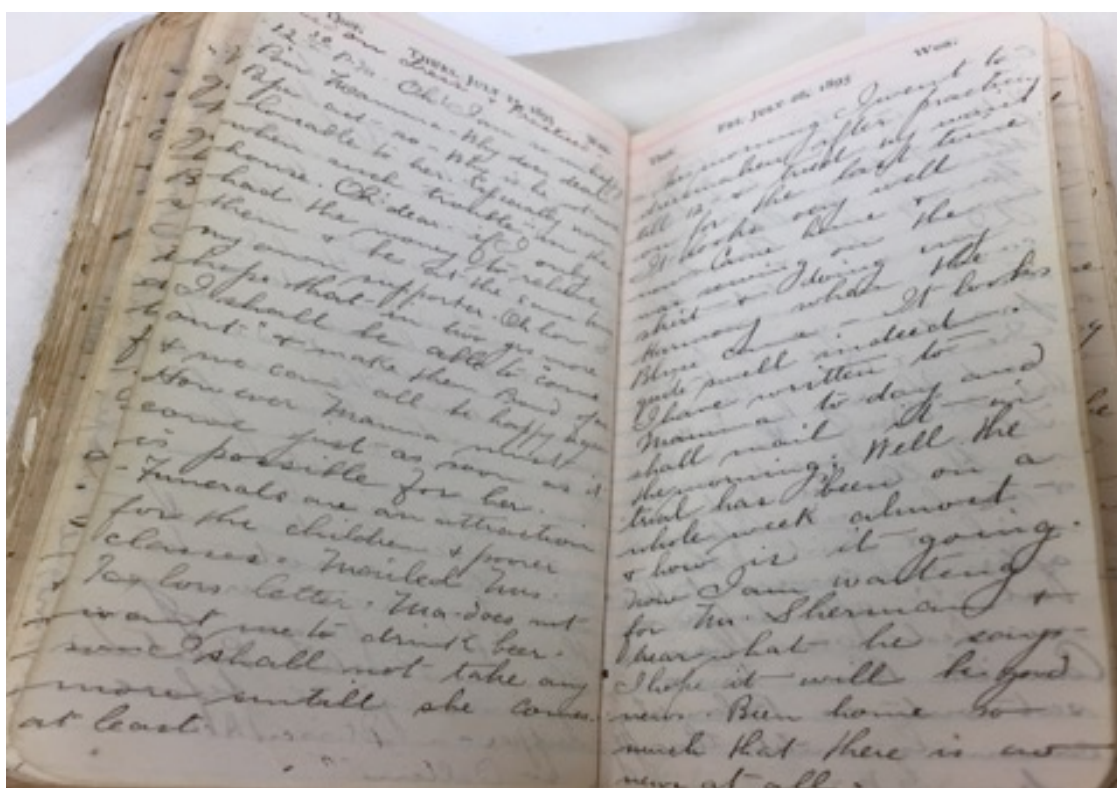 Ther.
THURS. JULY 25, 1895
Wea.
12 30 P.M. Oh! I am so unhappy
Poor Mamma. Why does dear
Papa act so - Why is he not
to her. Especially now
when such trouble in the
house. Oh! dear if I only
had the money to relieve
them & be at the same time
my own supporter. Oh how I
hope that in two yrs more
I shall be able to come
& make them
& we can all be happy again
However Mamma must
come just as soon as it
is possible for her.
- Funerals are an attraction
for the children & poorer
classes. Mailed Mrs.
Taylors letter. Ma does not
want me to drink beer.
I shall not take any
more untill she comes.
at least.
Ther.
FRI. JULY 26, 1895
Wea.
This morning I went to
dressmakers after practicing
till 12 & tried my waist
on for the last time.
It looks very well
came home &
was sewing on the
skirt & doing my
Harmony when the
Blouse came - It looks
quite swell indeed.
I have written to
Mamma to day and
shall mail it in
the morning. Well the
trial has been on a
whole week almost -
& how is it going.
now I am waiting
for Mr. Sherman &
hear what he says
I hope it will be good
news. Been home so
much that there is no
news at all.